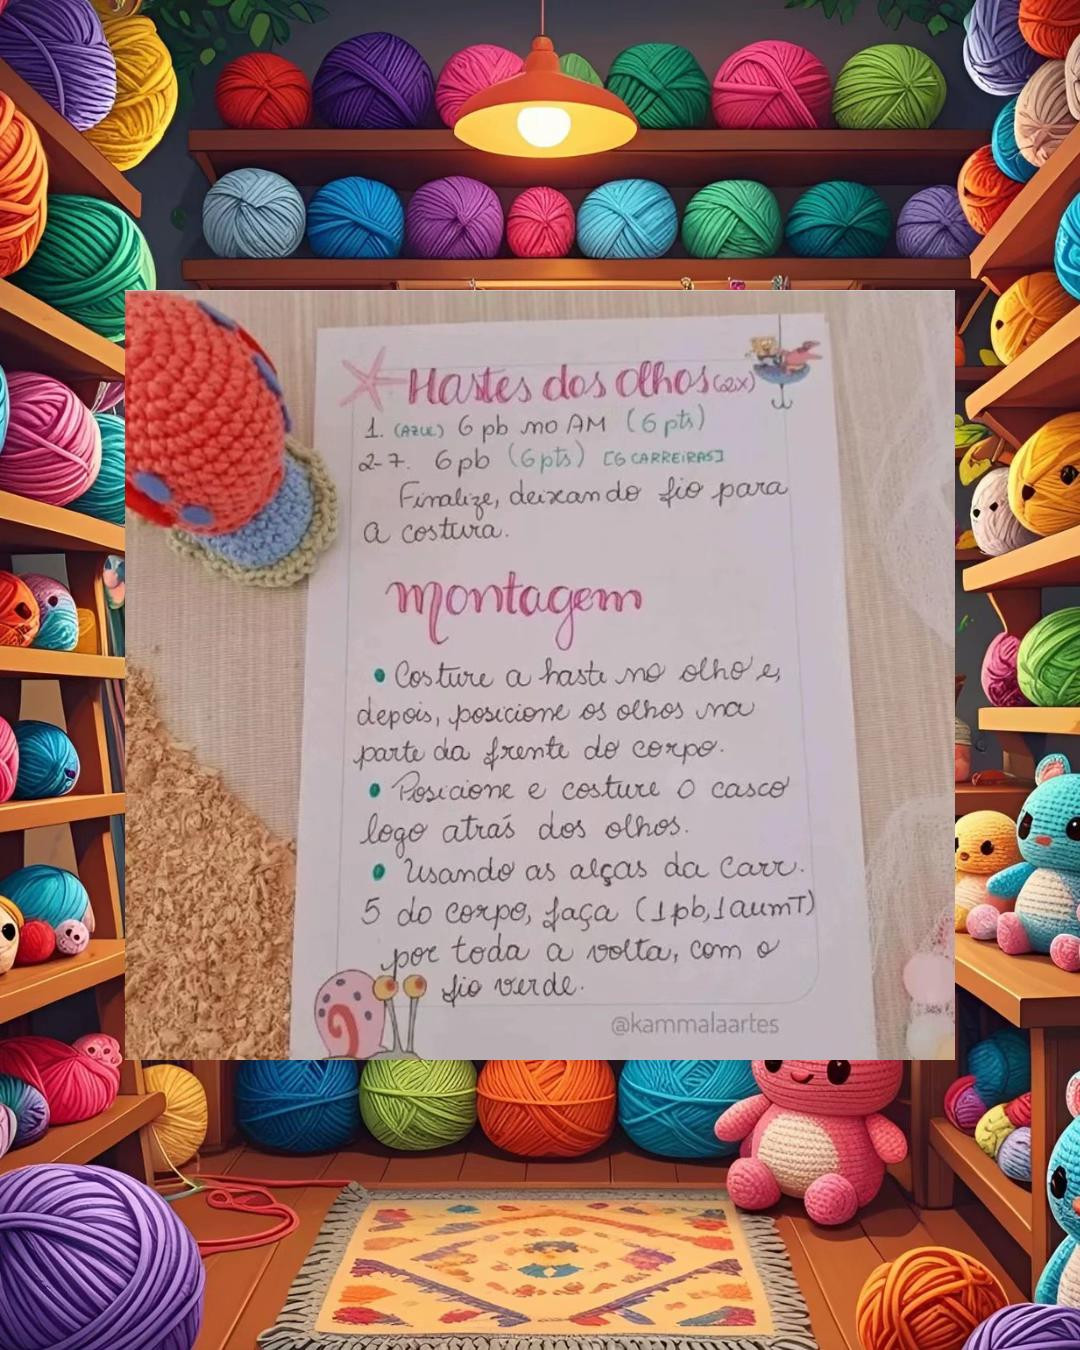 Hastes dos olhos (2x)
1. (AZUL) 6 pb no AM (6 pts)
2-7. 6 pb (6 pts) [6 CARREIRAS]
Finalize, deixando fio para
a costura.
Montagem
• Costure a haste no olho e,
depois, posicione os olhos na
parte da frente do corpo.
• Posicione e costure o casco
logo atrás dos olhos.
• Usando as alças da Carr.
5 do corpo, faça (1pb, 1aumT)
por toda a volta, com o
fio verde.
@kammalaartes